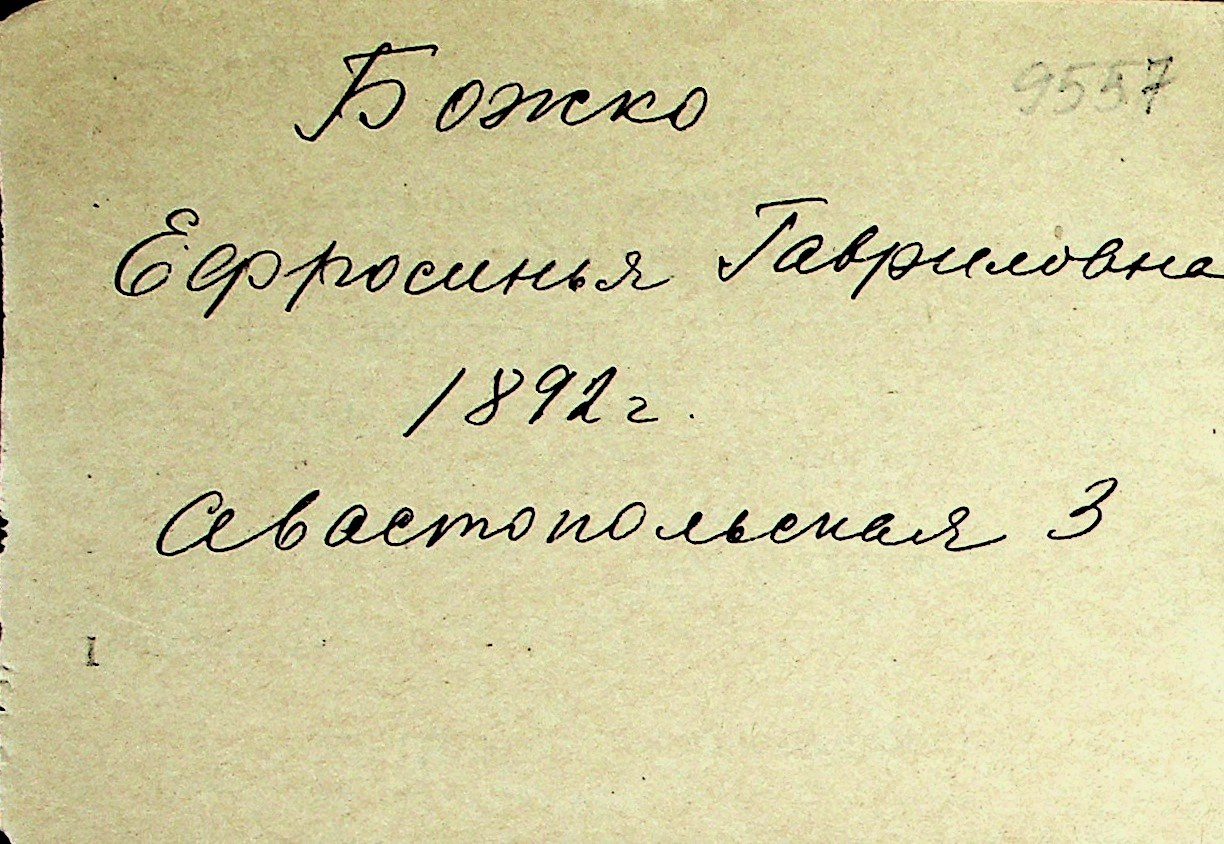 Божко 9557
Ефросинья Гавриловна
1892 г.
Севастопольская 3
1